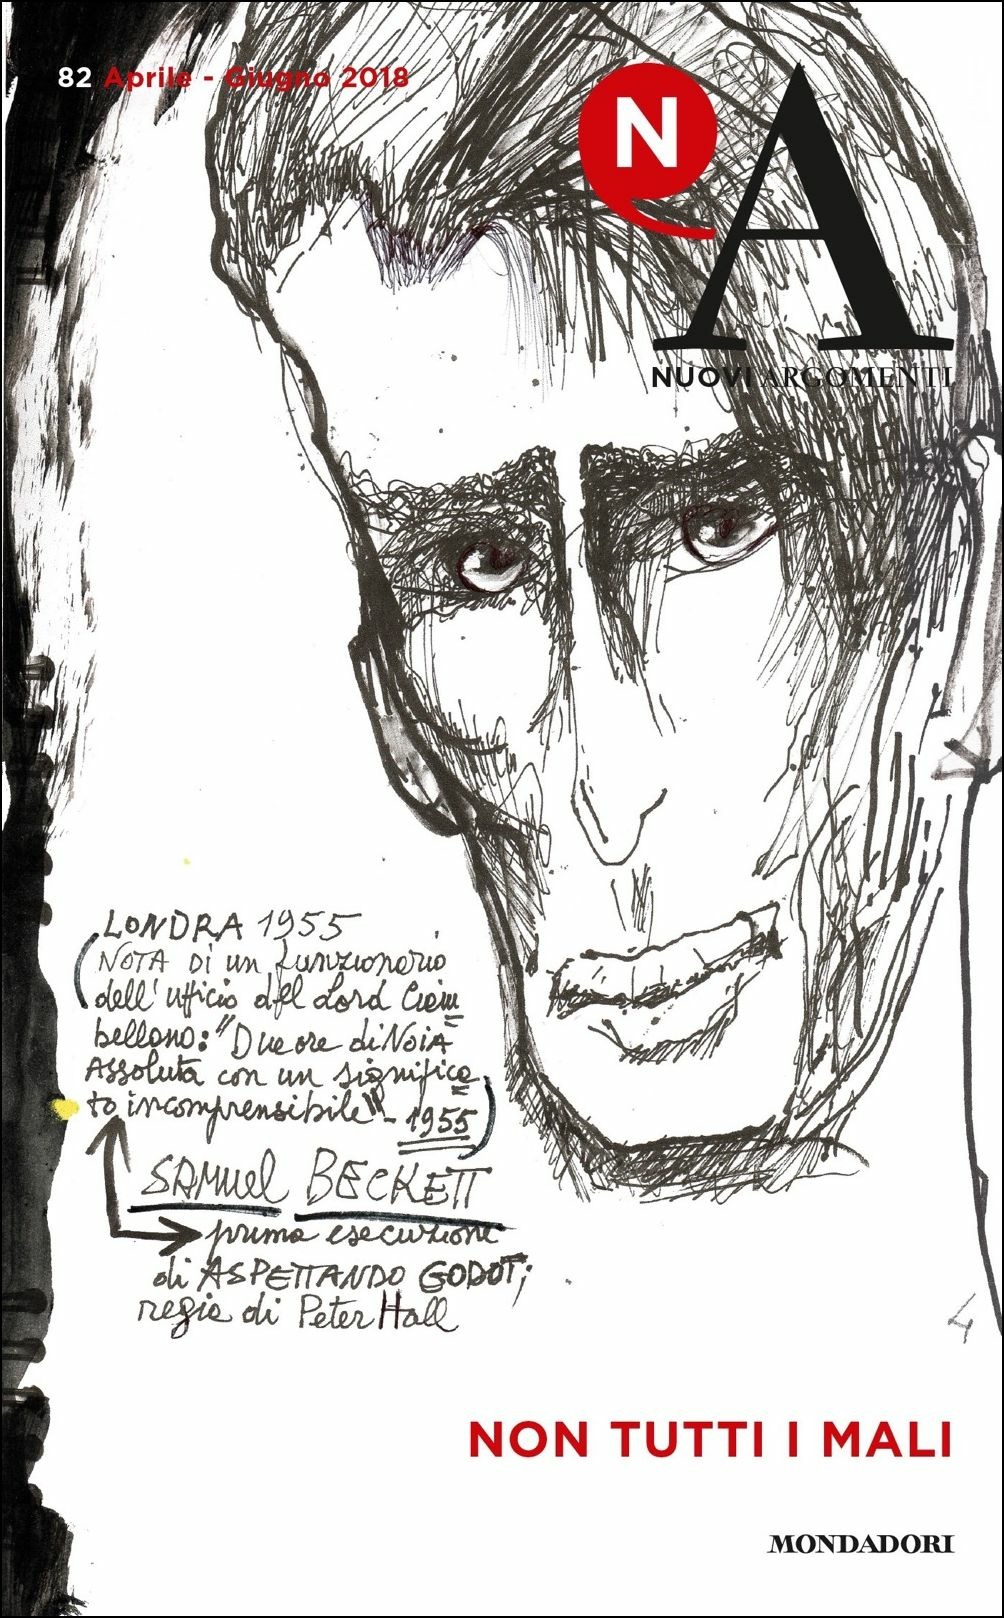 82 Aprile - Giugno 2018
N A
NUOVI ARGOMENTI
LONDRA 1955
(NOTA DI un funzionario
dell'ufficio del Lord Ciam
bellano: "Due ore di NOIA
Assoluta con un significa
to incomprensibile" - 1955)
SAMUEL BECKETT
prima esecuzione
di ASPETTANDO GODOT;
regia di Peter Hall
4
NON TUTTI I MALI
MONDADORI